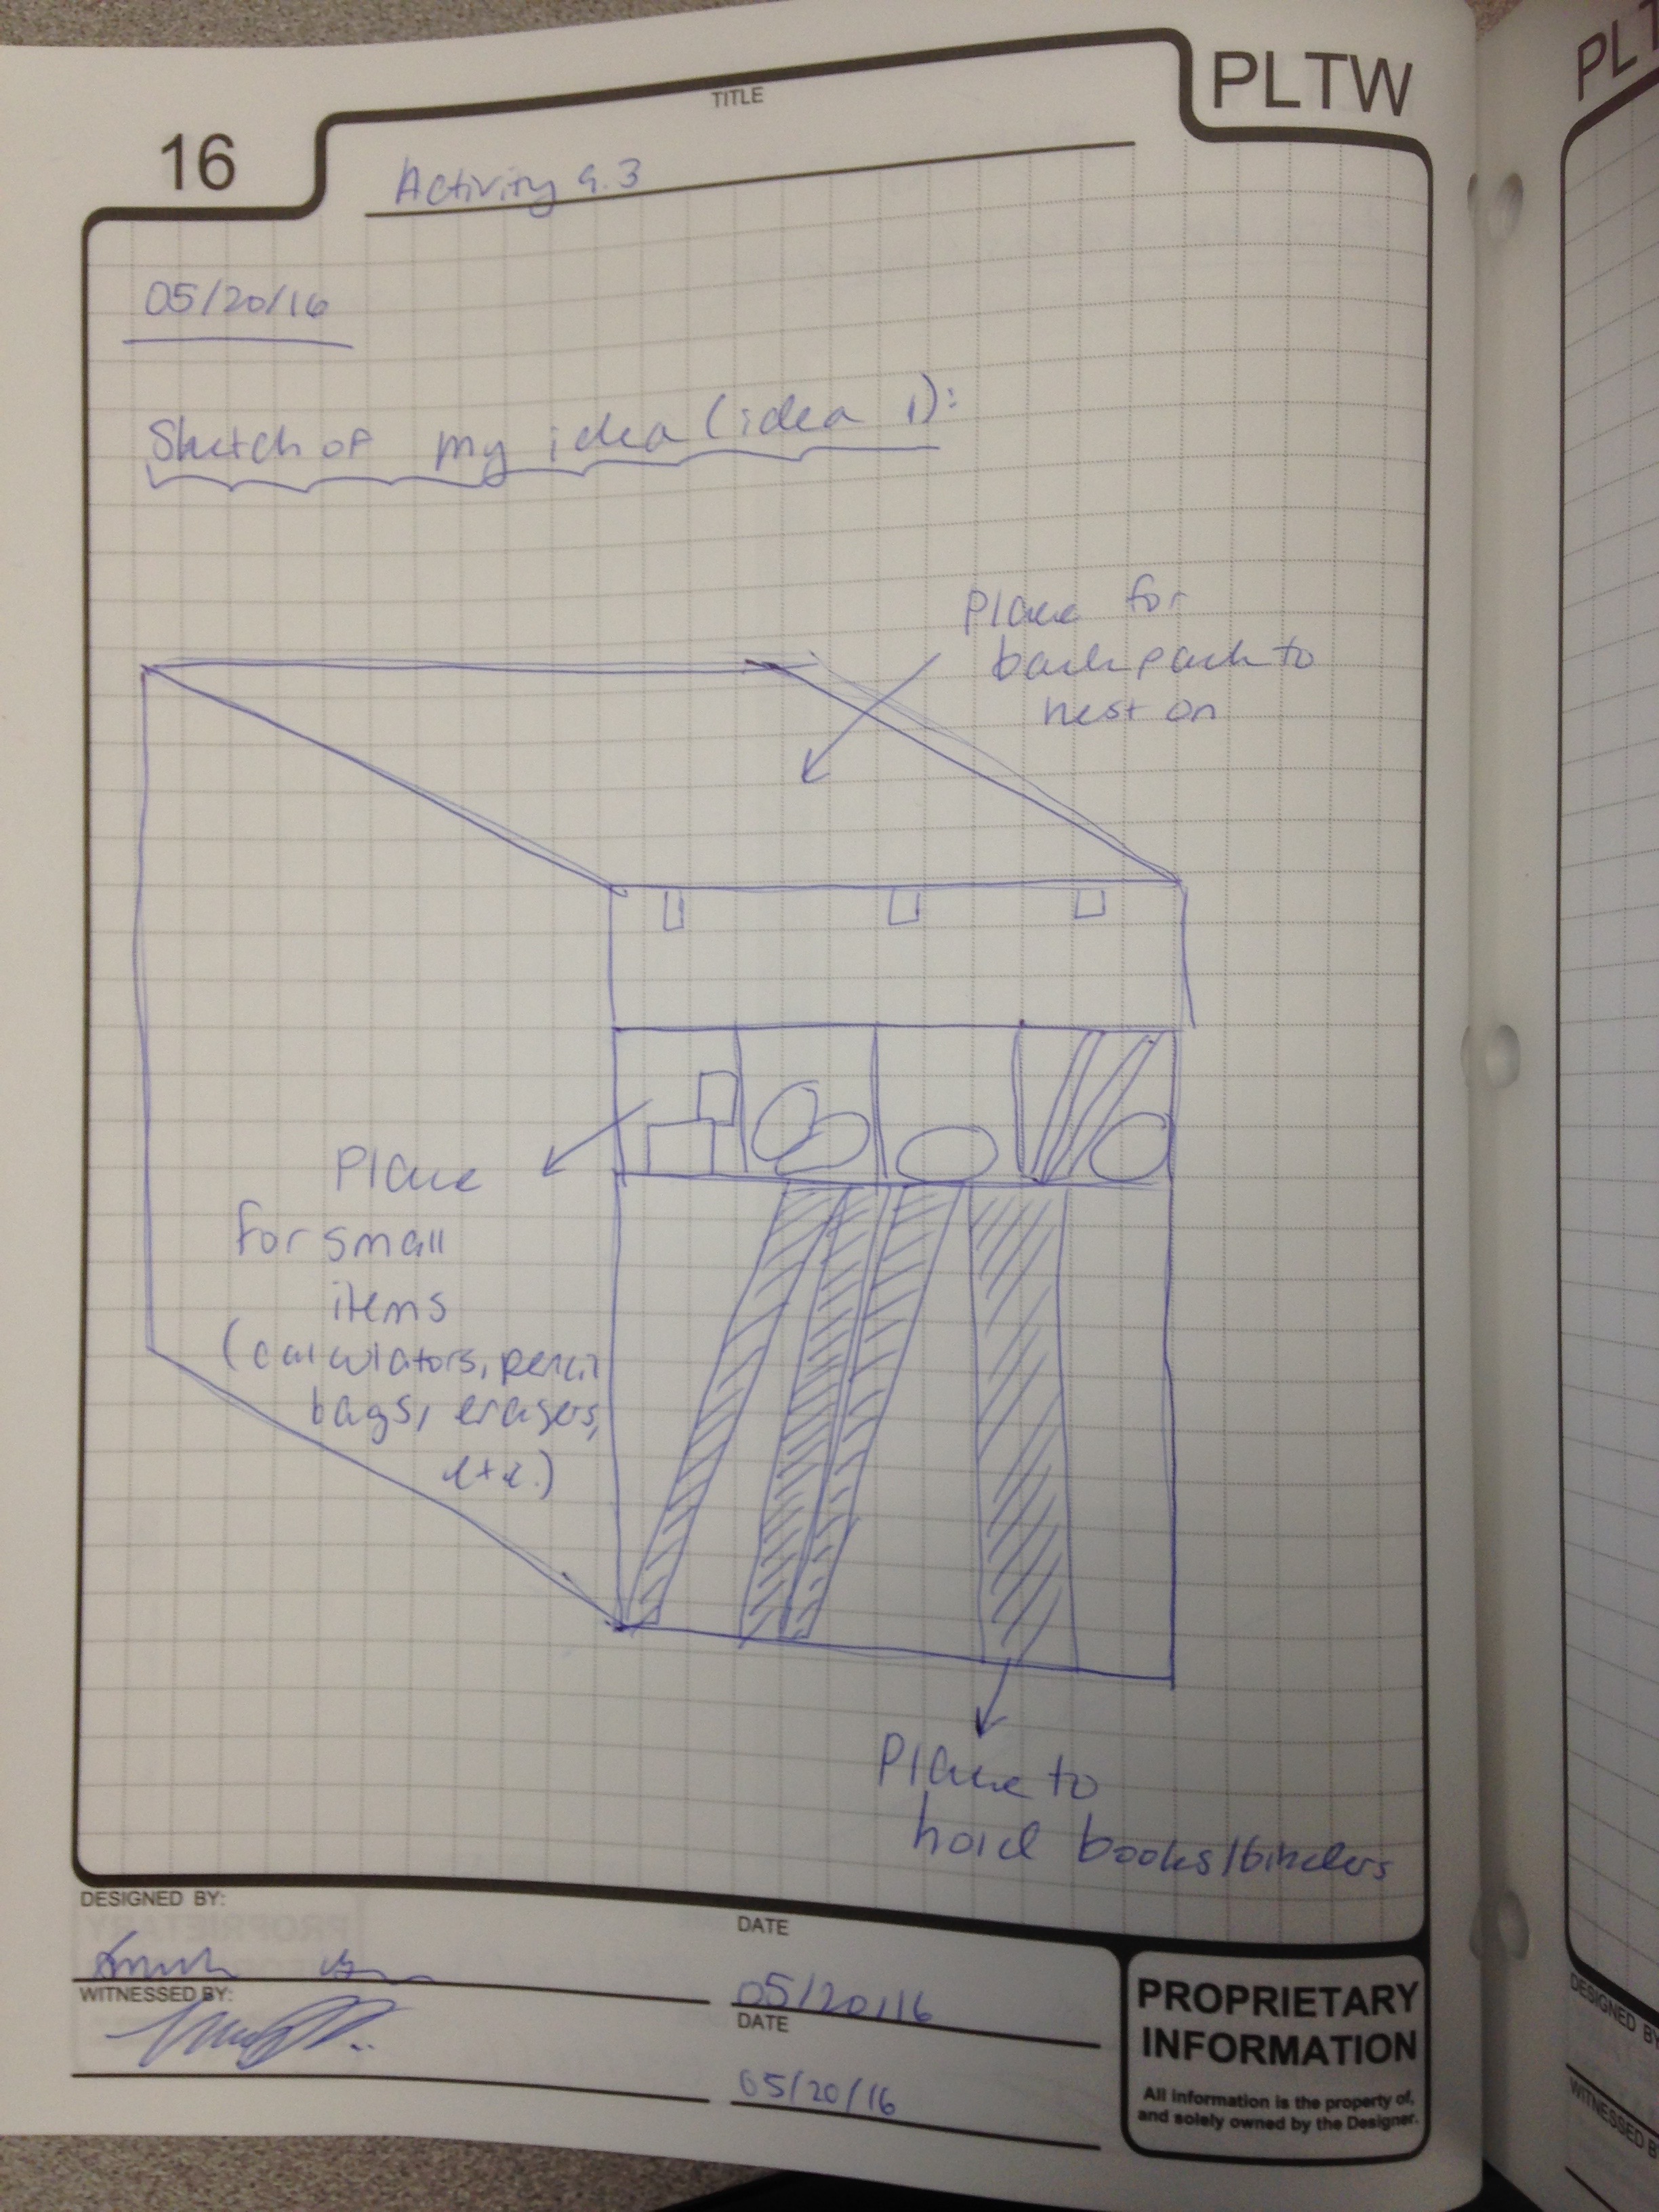 PLTW
TITLE
16
Activity 9.3
05/20/16
Sketch of my idea (idea 1):
Place for
backpack to
rest on
Place
for small
items
(calculators, pencil
bags, erasers,
etc.)
Place to
hold books/binders
DESIGNED BY:
DATE
05/20/16
WITNESSED BY:
DATE
05/20/16
PROPRIETARY
INFORMATION
All information is the property of,
and solely owned by the Designer.
PLT
DESIGNED BY
WITNESSED B